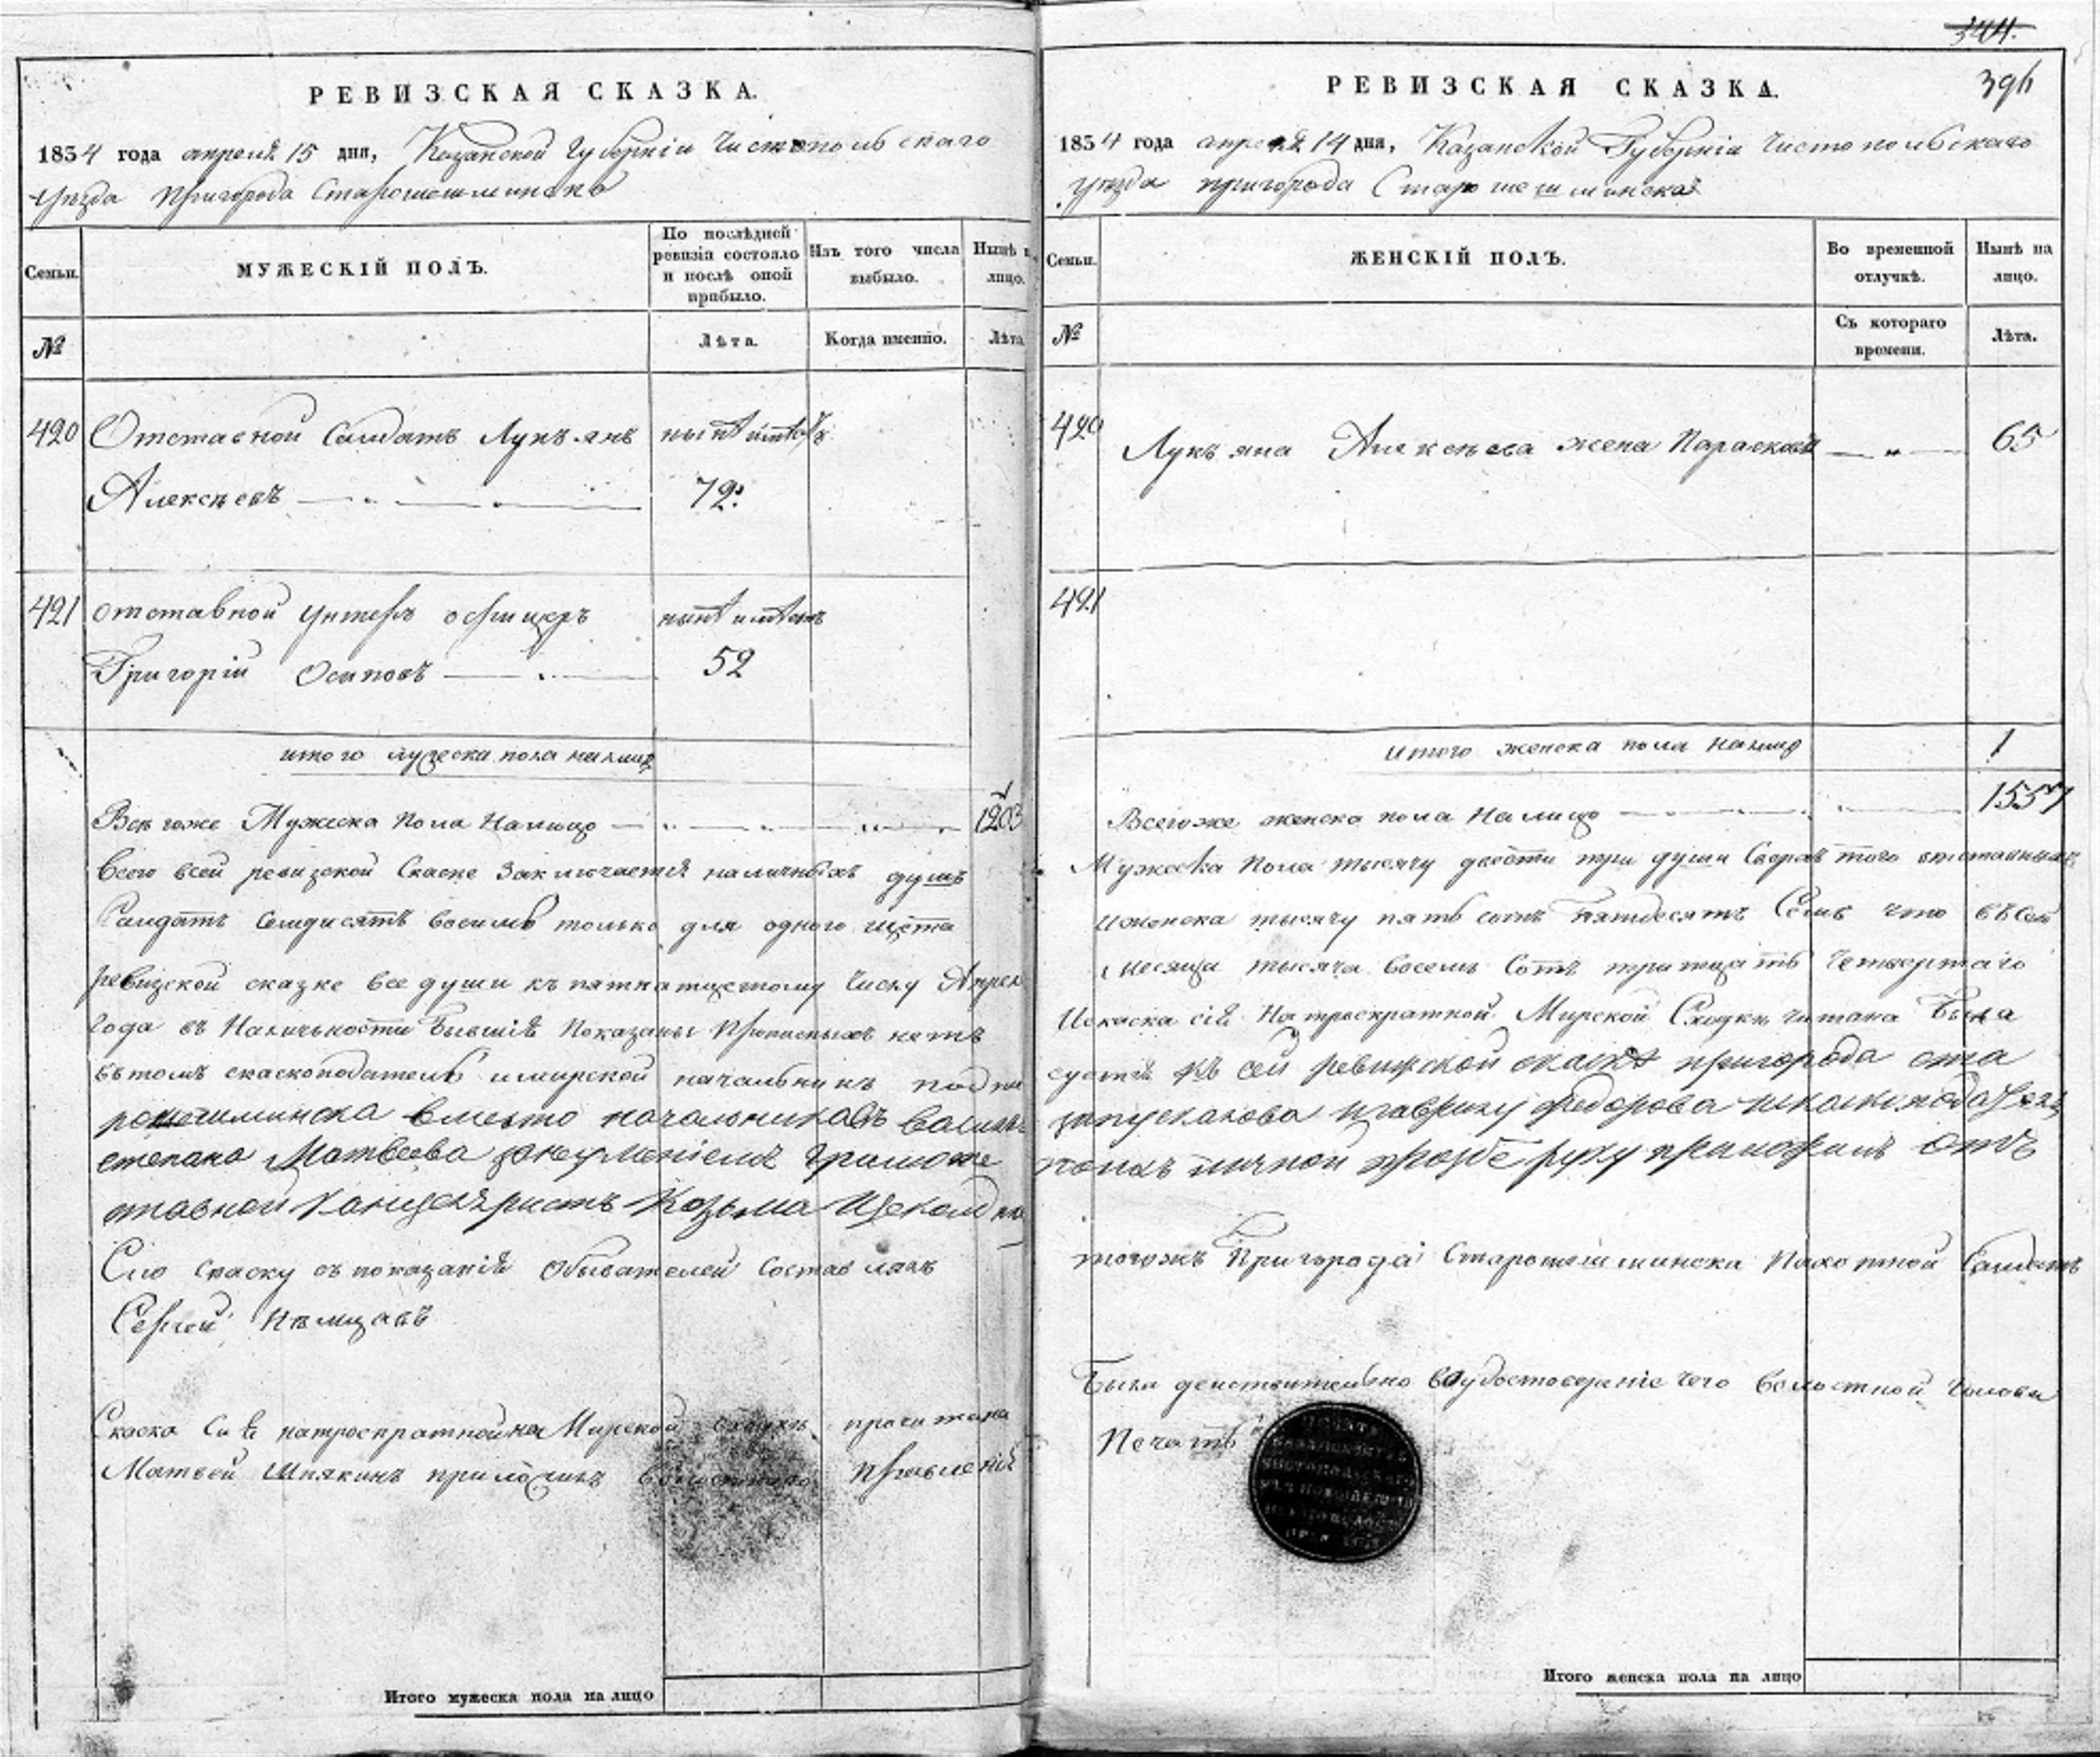 РЕВИЗСКАЯ СКАЗКА.
1834 года апреля 15 дня, Казанской Губернiи Чистопольскаго
Уѣзда Пригорода Старошешминска
Семьи.
МУЖЕСКIЙ ПОЛЪ.
По послѣдней ревизiи состояло и послѣ оной прибыло.
Изъ того числа выбыло.
Нынѣ на лицо.
№
Лѣта.
Когда именно.
Лѣта
420 Отставной Салдатъ Лукъянъ
Алексѣевъ 72
421 отставной унтеръ офицеръ
Григорiй Осиповъ 52
итого мужеска пола налицо
Всего же Мужеска Пола Налицо 1203
Всего всей ревизской Скаске Заключается наличныхъ душъ
Салдатъ Семдисятъ восимь только для одного щета
ревизской сказке все души къ пятнатцетому Числу Апрел
Года въ Наличьности Бывшiя Показаны Прописныхъ нетъ
въ томъ скаскоподатель и мирской начальникъ подпи
рошешминска вместо начальниковъ Василь
степана Матвеева грамоте
ставной Канцеляристъ Козьма
Сию скаску съ показанiя Обывателей Составлялъ
Сергей Немцавъ
Скаска Сия на троекратной на Мирской сходке прочитана
Матвей Шпякинъ приложилъ Волостнаго Правленiя
Итого мужеска пола на лицо
344.
396
РЕВИЗСКАЯ СКАЗКА.
1834 года апреля 14 дня, Казанской Губернiи Чистопольскаго
уѣзда пригорода Старошешминска
Семьи.
ЖЕНСКIЙ ПОЛЪ.
Во временной отлучкѣ.
Нынѣ на лицо.
№
Съ котораго времени.
Лѣта.
420 Лукъяна Алексѣева жена Парасковья 65
421
Итого женска пола налицо 1
Всего же женска пола На лицо 1557
Мужеска Пола тысячу двести три души Сверхъ того отставныхъ
и женска тысячу пять сотъ Пятдесятъ Семь что въ сей
месяца тысяча восемь Сотъ тритцать Четвертаго
И скаска сiя На троекратной Мирской Сходке читана Была
суется къ сей ревизской скаске пригорода ста
Федорова и скаскоподателя
личной прозбе руку приложилъ От
тогожъ Пригорода Старошешминска Пахотной Салдатъ
Была действительно во удостоверенiе чего волостной Голова
Печать
Итого женска пола на лицо